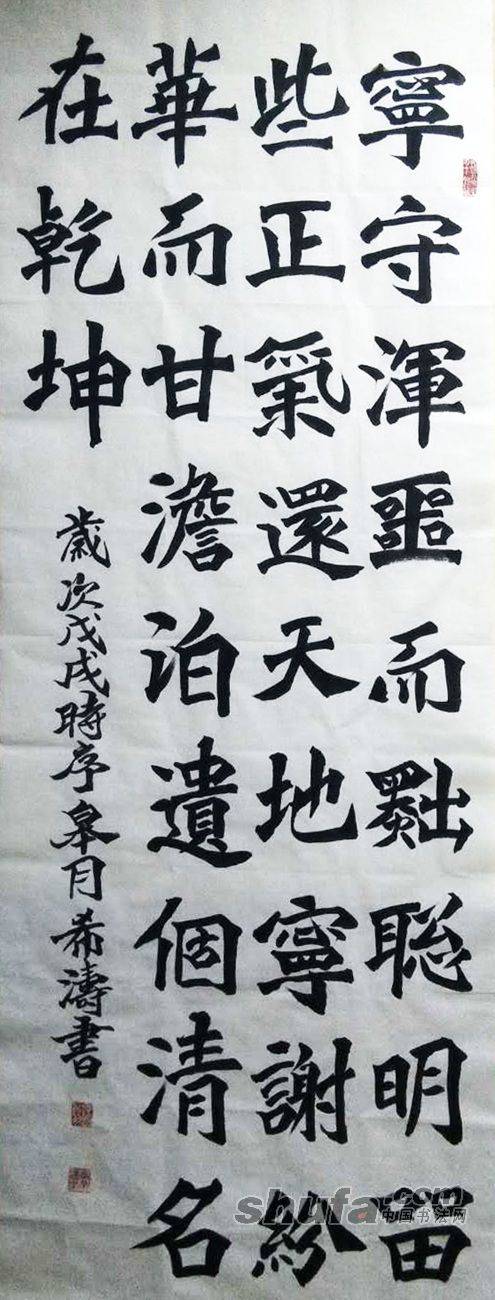 寧守渾噩而黜聡明留
些正氣還天地寧謝紛
華而甘澹泊遺個清名
在乾坤
歲次戊戌時序皋月希濤書
shufa.com
中国书法网